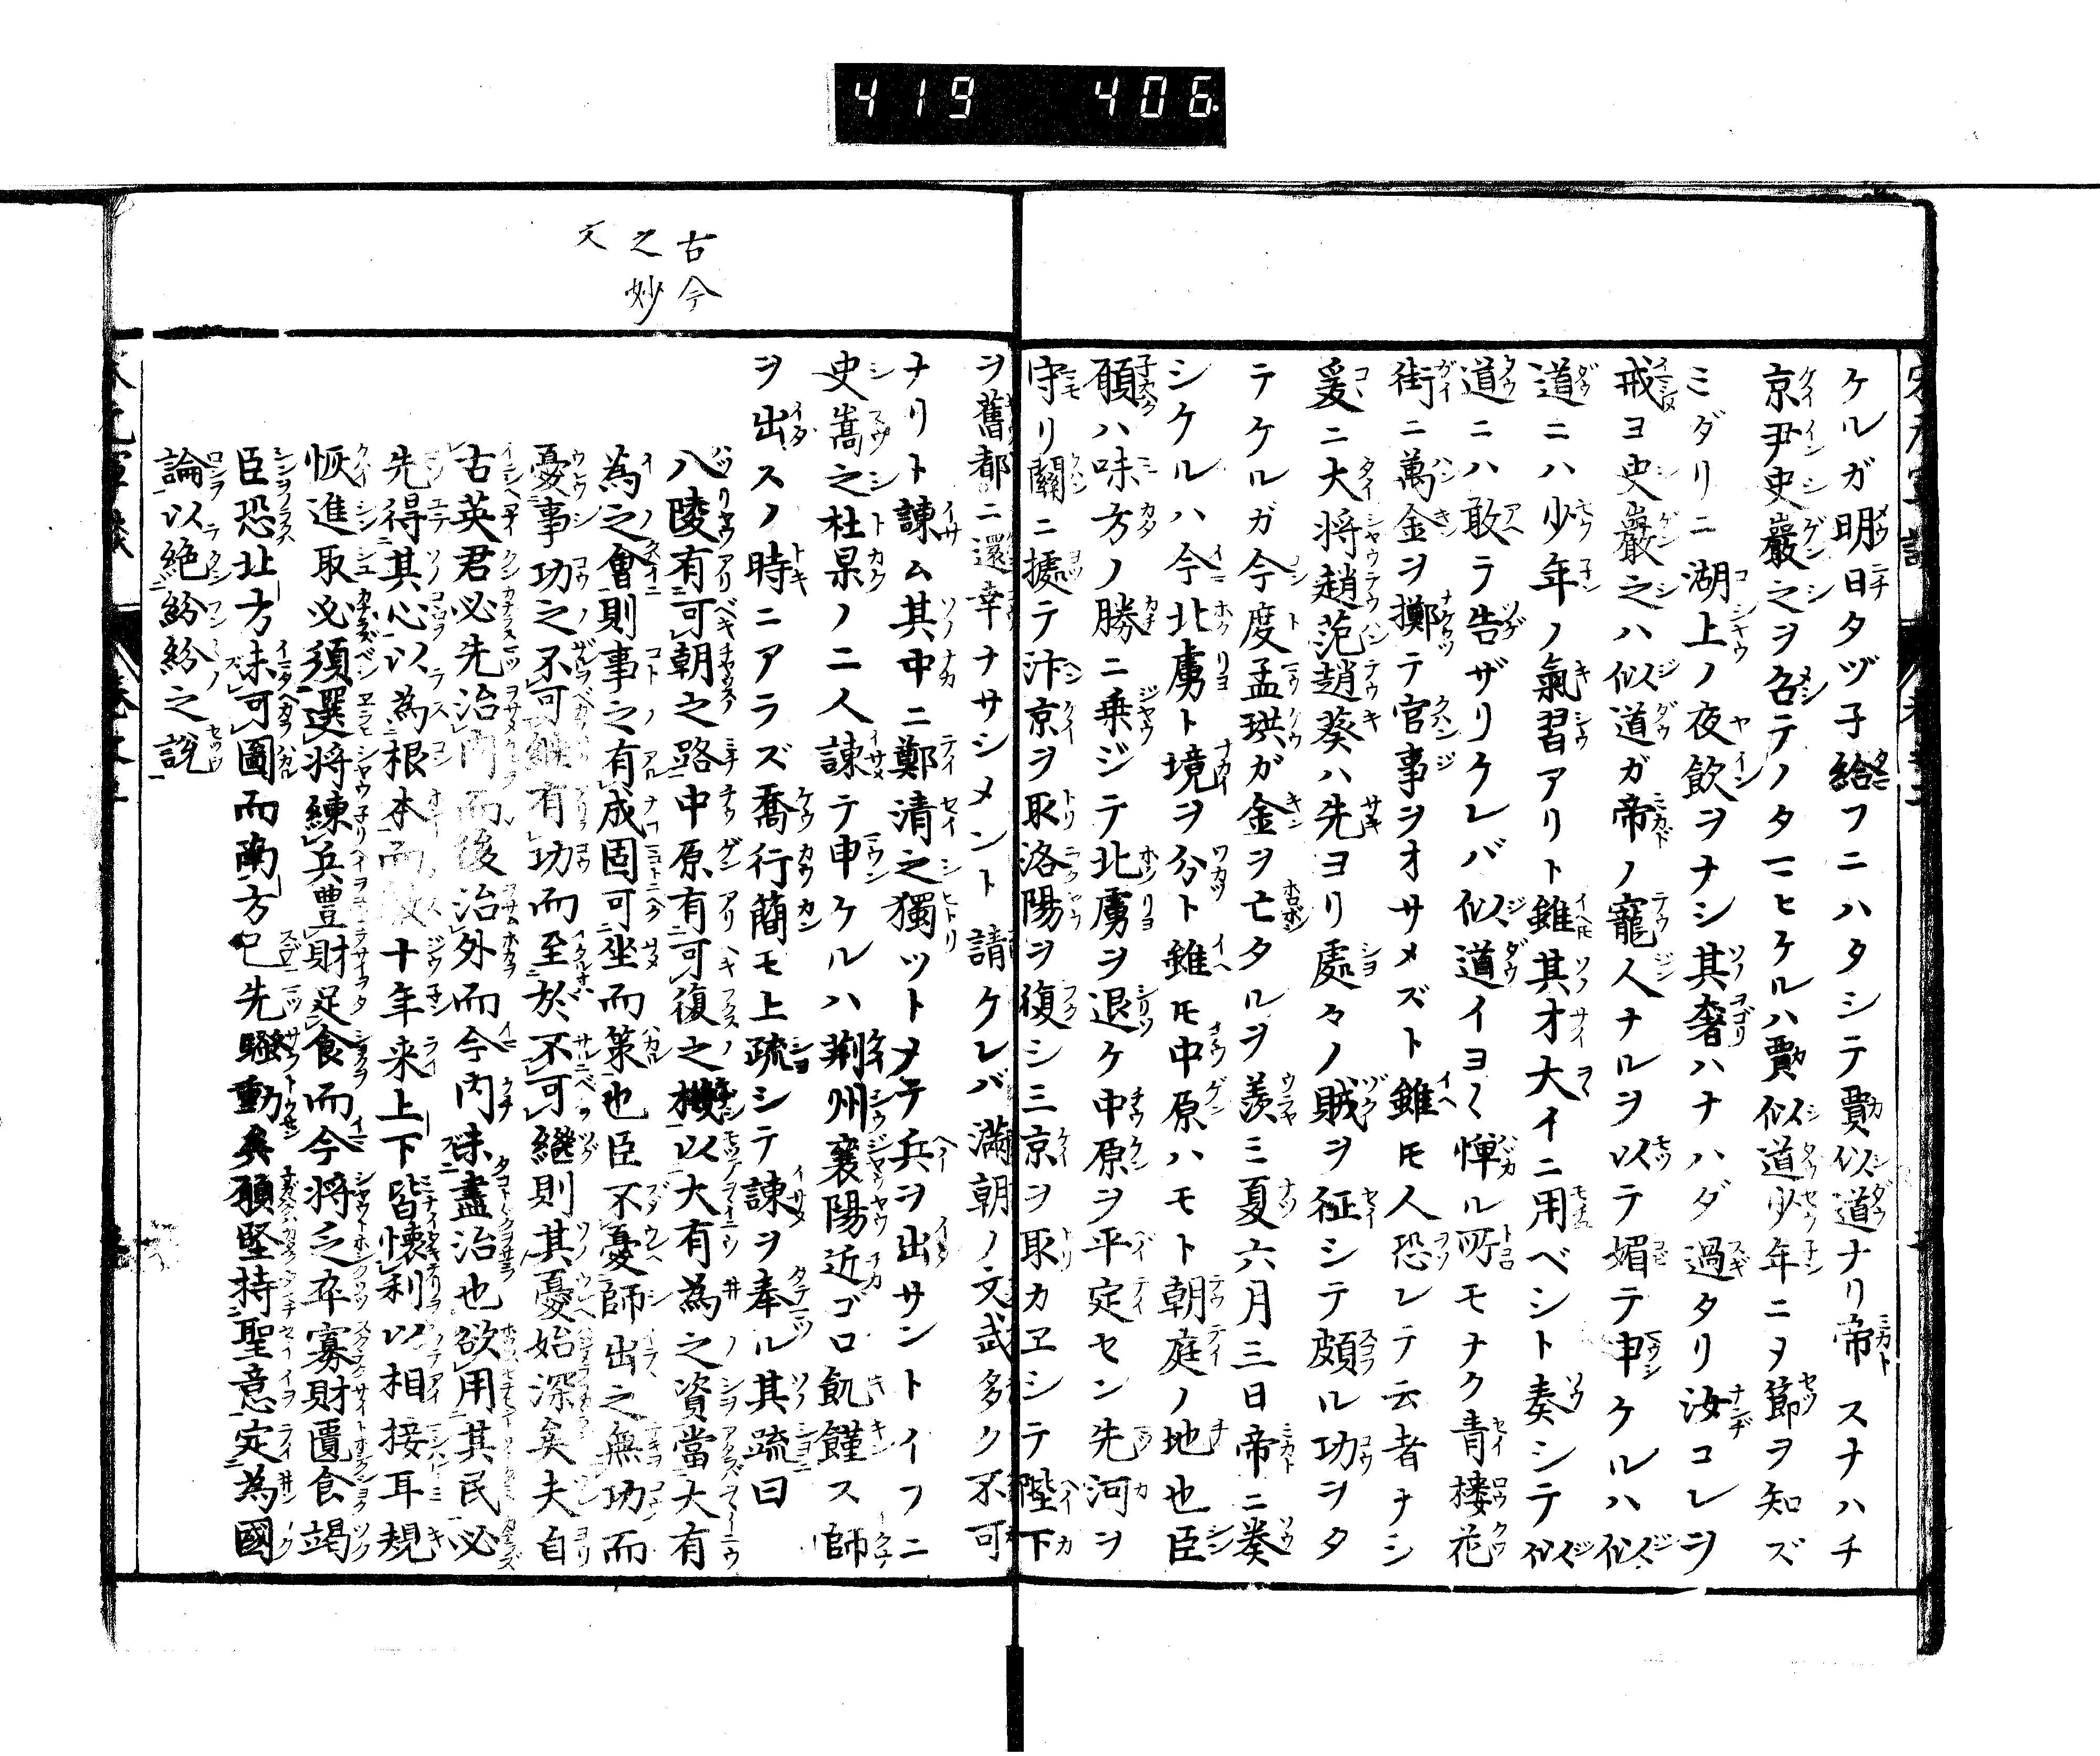 419 406
ケルガ明日タヅ子給フニハタシテ賈似道ナリ帝スナハチ
京尹史巖之ヲ召テノタマヒケルハ賈似道少年ニヲ節ヲ知ズ
ミダリニ湖上ノ夜飲ヲナシ其奢ハナハダ過タリ汝コレヲ
戒ヨ史巖之ハ似道ガ帝ノ寵人ナルヲ以テ媚テ申ケルハ似
道ニハ少年ノ氣習アリト雖其才大イニ用ベシト奏シテ似
道ニハ敢テ告ザリケレバ似道イヨ〱憚ル所モナク青樓花
街ニ萬金ヲ擲テ官事ヲオサメズト雖モ人恐レテ云者ナシ
爰ニ大将趙范趙葵ハ先ヨリ處々ノ賊ヲ征シテ頗ル功ヲタ
テケルガ今度孟珙ガ金ヲ亡タルヲ羨ミ夏六月三日帝ニ奏
シケルハ今北虜ト境ヲ分ト雖モ中原ハモト朝庭ノ地也臣
願ハ味方ノ勝ニ乗ジテ北虜ヲ退ケ中原ヲ平定セン先河ヲ
守リ關ニ據テ汴京ヲ取洛陽ヲ復シ三京ヲ取カヱシテ陛下
古今
之妙
文
ヲ舊都ニ還幸ナサシメント請ケレバ満朝ノ文武多ク不可
ナリト諫ム其中ニ鄭清之獨ツトメテ兵ヲ出サントイフニ
史嵩之杜杲ノ二人諫テ申ケルハ荆州襄陽近ゴロ飢饉ス師
ヲ出スノ時ニアラズ喬行簡モ上疏シテ諫ヲ奉ル其疏曰
八陵有可朝之路中原有可復之機以大有為之資當大有
為之會則事之有成固可坐而策也臣不憂師出之無功而
憂事功之不可繼有功而至於不可繼則其憂始深矣夫自
古英君必先治内而後治外而今内未盡治也欲用其民必
先得其心以為根本而數十年来上下皆懐利以相接耳規
恢進取必須選将練兵豊財足食而今将乏卒寡財匱食竭
臣恐北方未可圖而南方已先騒動矣願堅持聖意定為國
論以絶紛紛之說